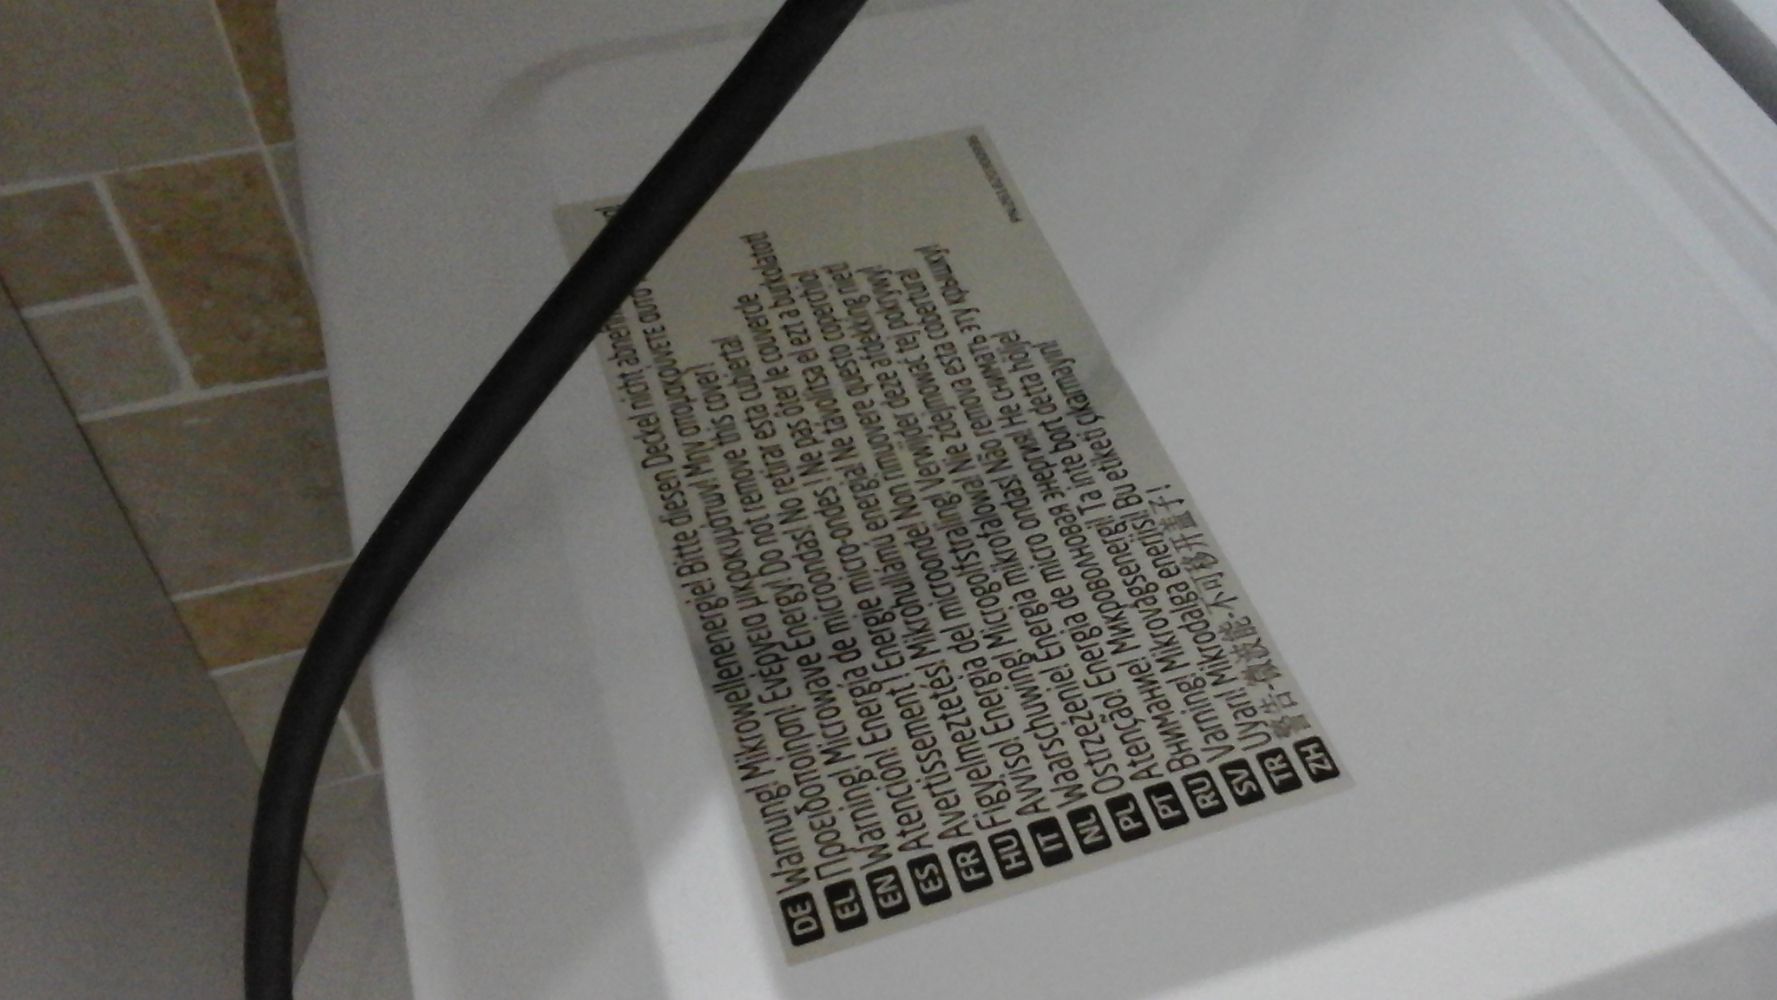 DE Warnung! Mikrowellenenergie! Bitte diesen Deckel nicht
EL Προειδοποίηση! Ενέργεια μικροκυμάτων! Μην απομακρύνετε αυτό
EN Warning! Microwave Energy! Do not remove this cover!
ES Atencion! Energia de microondas! No retirar esta cubierta!
FR Avertissement ! Energie micro-ondes ! Ne pas ôter le couvercle
HU Figyelmeztetés! Mikrohullámú energia! Ne távolítsa el ezt a burkolatot!
IT Avviso! Energia del microonde! Non rimuovere questo coperchio!
NL Waarschuwing! Microgolfstraling! Verwijder deze afdekking niet!
PL Ostrzeżenie! Energia mikrofalowa! Nie zdejmować tej pokrywy!
PT Atenção! Energia de micro ondas! Não remova esta cobertura!
RU Внимание! Микроволновая энергия! Не снимать эту крышку!
SV Varning! Mikrovågsenergi! Ta inte bort detta hölje!
TR Uyarı! Mikrodalga enerjisi! Bu etiketi çıkarmayın!
ZH 警告-微波能 不可移开盖子!